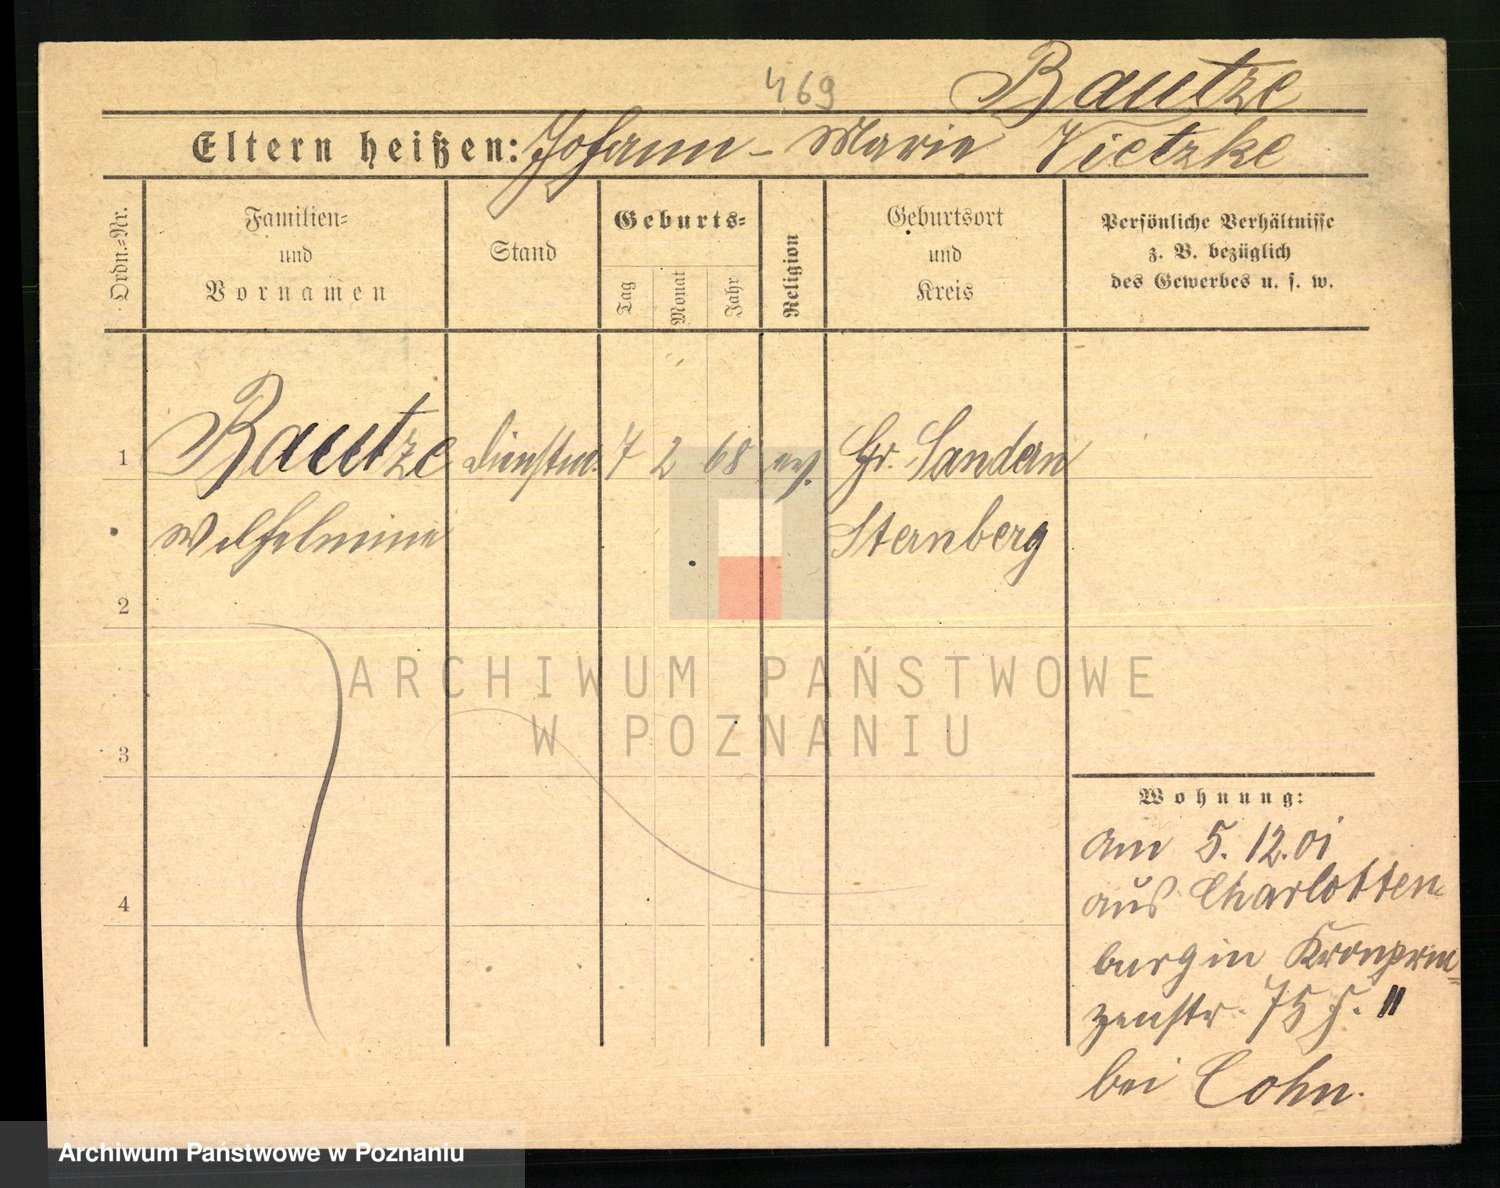 469
Bautze
Eltern heißen: Johann - Marie Vietzke
Ordn.-Nr.
Familien-
und
Vornamen
Stand
Geburts-
Tag
Monat
Jahr
Religion
Geburtsort
und
Kreis
Persönliche Verhältnisse
z. B. bezüglich
des Gewerbes u. s. w.
1
Bautze Dienstm. 7 2 68 ev. Gr. Sandern
Wilhelmine Sternberg
2
3
4
Wohnung:
am 5. 12. 01
aus Charlotten-
burg in Kronprin-
zenstr. 75 II
bei Cohn.
ARCHIWUM PAŃSTWOWE
W POZNANIU
Archiwum Państwowe w Poznaniu